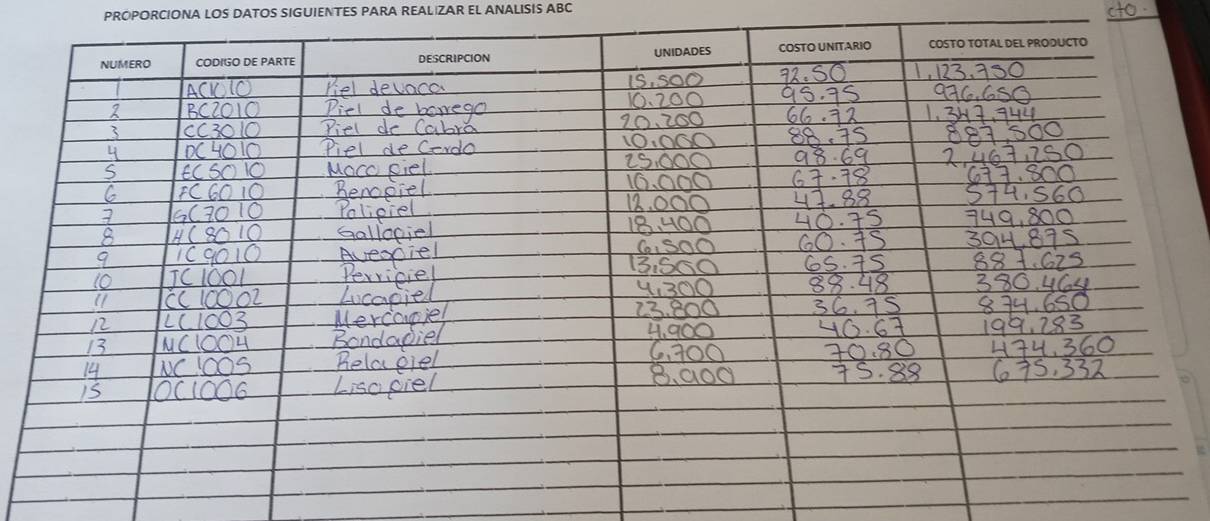 cto.
PROPORCIONA LOS DATOS SIGUIENTES PARA REALIZAR EL ANALISIS ABC
NUMERO CODIGO DE PARTE DESCRIPCION UNIDADES COSTO UNITARIO COSTO TOTAL DEL PRODUCTO
1 AC1010 Piel devaca 15.500 72.50 1,123.750
2 BC2010 Piel de borrego 10.200 95.75 976,650
3 CC3010 Piel de Cabra 20.200 66.72 1.347.744
4 DC4010 Piel de Cerdo 10,000 88.75 887,500
5 EC5010 Mocopiel 25,000 98.69 2,467,250
6 FC6010 Benopiel 10.000 67.78 677.800
7 GC7010 Polipiel 12.000 47.88 574.560
8 HC8010 Gallopiel 18.400 40.75 749,800
9 IC9010 Avespiel 6,500 60.75 394,875
10 JC1001 Perripiel 13,500 65.75 887.625
11 CC10002 Lucapiel 4,300 88.48 380,464
12 LC1003 Mercapiel 23.800 36.75 874.650
13 MC1004 Bondapiel 4.900 40.67 199,283
14 NC1005 Belapiel 6,700 70.80 474,360
15 OC1006 Lisapiel 8.900 75.88 675,332